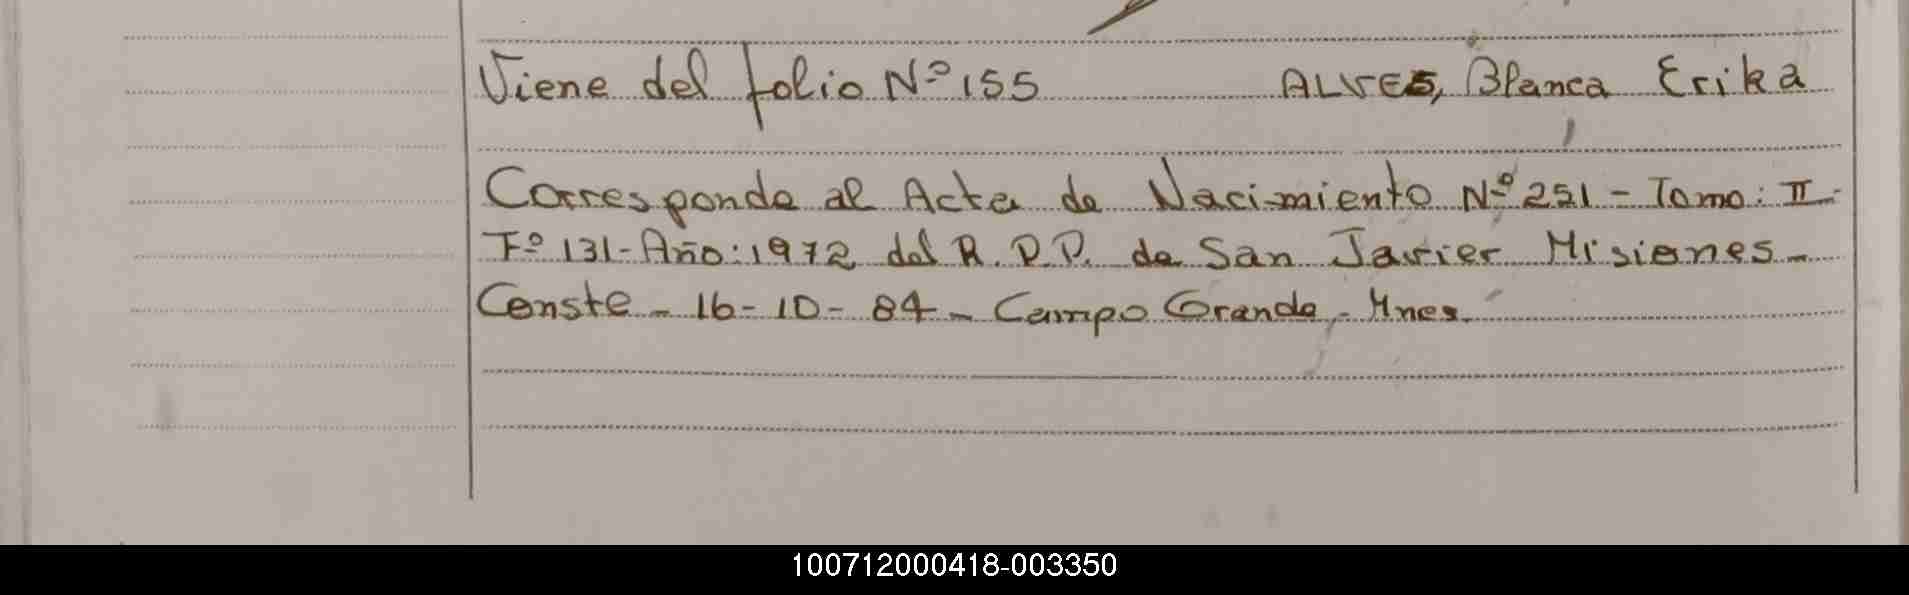 Viene del folio Nº 155 ALVES, Blanca Erika
Corresponde al Acta de Nacimiento Nº 251 - Tomo: II -
Fº 131 - Año: 1972 del R. P. P. de San Javier Misiones -
Conste - 16-10-84 - Campo Grande, - Mnes.
100712000418-003350